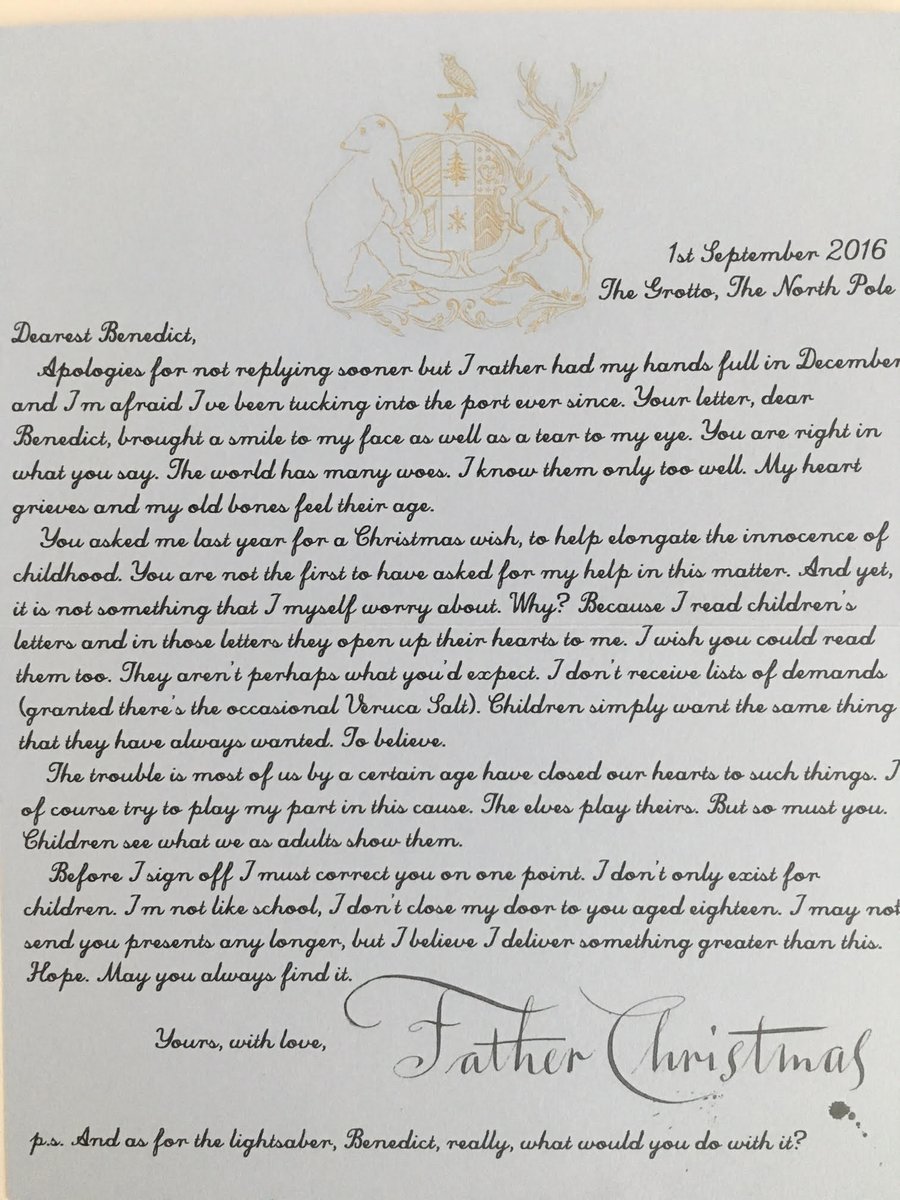 1st September 2016
The Grotto, The North Pole
Dearest Benedict,
Apologies for not replying sooner but I rather had my hands full in December
and I'm afraid I've been tucking into the port ever since. Your letter, dear
Benedict, brought a smile to my face as well as a tear to my eye. You are right in
what you say. The world has many woes. I know them only too well. My heart
grieves and my old bones feel their age.
You asked me last year for a Christmas wish, to help elongate the innocence of
childhood. You are not the first to have asked for my help in this matter. And yet,
it is not something that I myself worry about. Why? Because I read children's
letters and in those letters they open up their hearts to me. I wish you could read
them too. They aren't perhaps what you'd expect. I don't receive lists of demands
(granted there's the occasional Veruca Salt). Children simply want the same thing
that they have always wanted. To believe.
The trouble is most of us by a certain age have closed our hearts to such things. I
of course try to play my part in this cause. The elves play theirs. But so must you.
Children see what we as adults show them.
Before I sign off I must correct you on one point. I don't only exist for
children. I'm not like school, I don't close my door to you aged eighteen. I may not
send you presents any longer, but I believe I deliver something greater than this.
Hope. May you always find it.
Yours, with love,
Father Christmas
p.s. And as for the lightsaber, Benedict, really, what would you do with it?